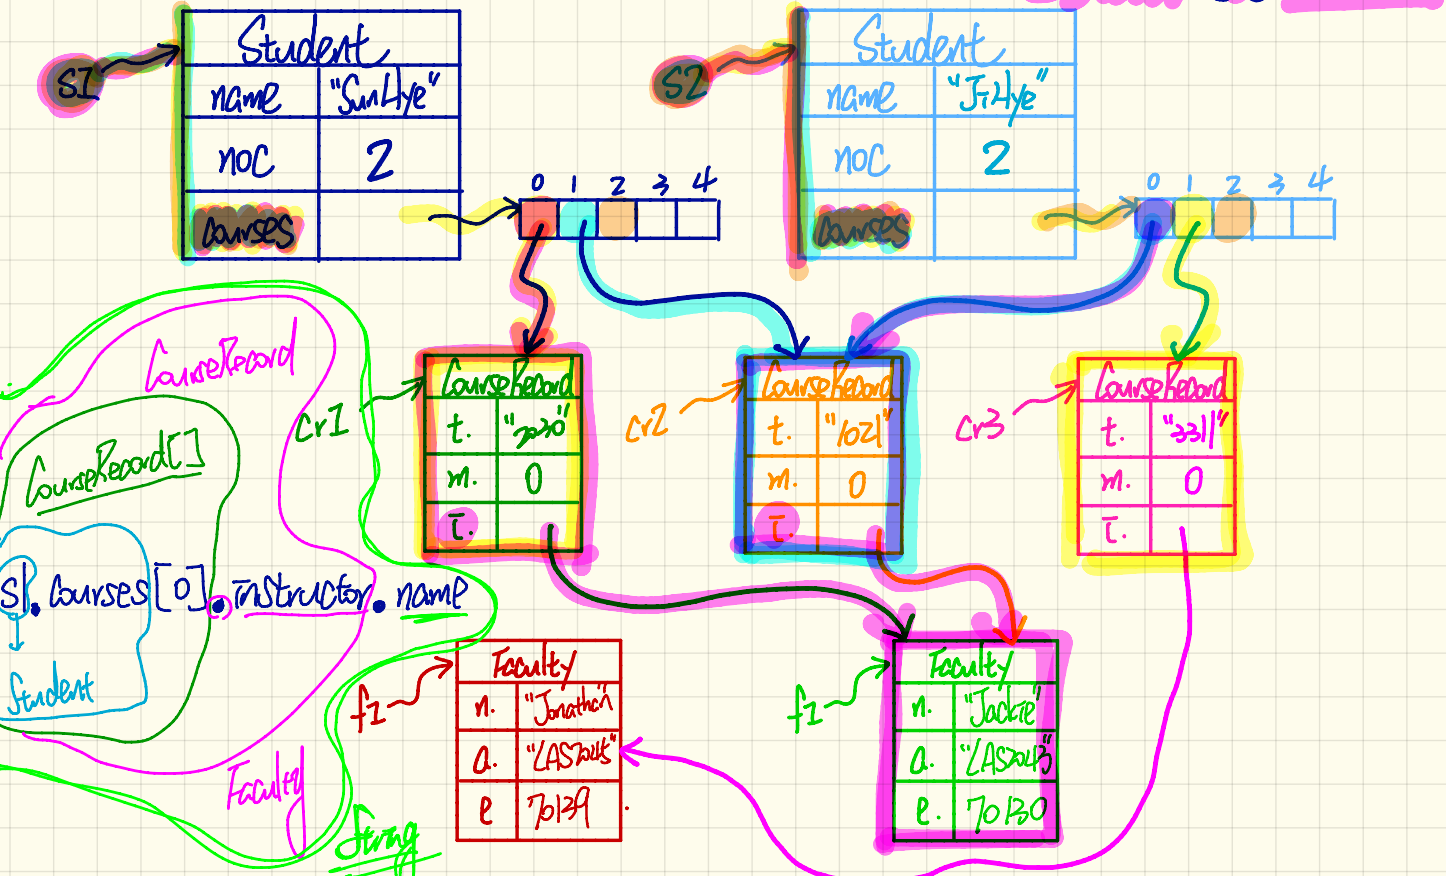 S1
Student
name "SunHye"
noc 2
Courses
0 1 2 3 4
S2
Student
name "JiHye"
noc 2
Courses
0 1 2 3 4
CourseRecord
CourseRecord[]
S1.Courses[0].instructor.name
Student
Faculty
String
cr1
CourseRecord
t. "2030"
m. 0
i.
cr2
CourseRecord
t. "1021"
m. 0
i.
cr3
CourseRecord
t. "3311"
m. 0
i.
f1
Faculty
n. "Jonathan"
a. "LAS2045"
e 70139
f1
Faculty
n. "Jackie"
a. "LAS2043"
e. 70130